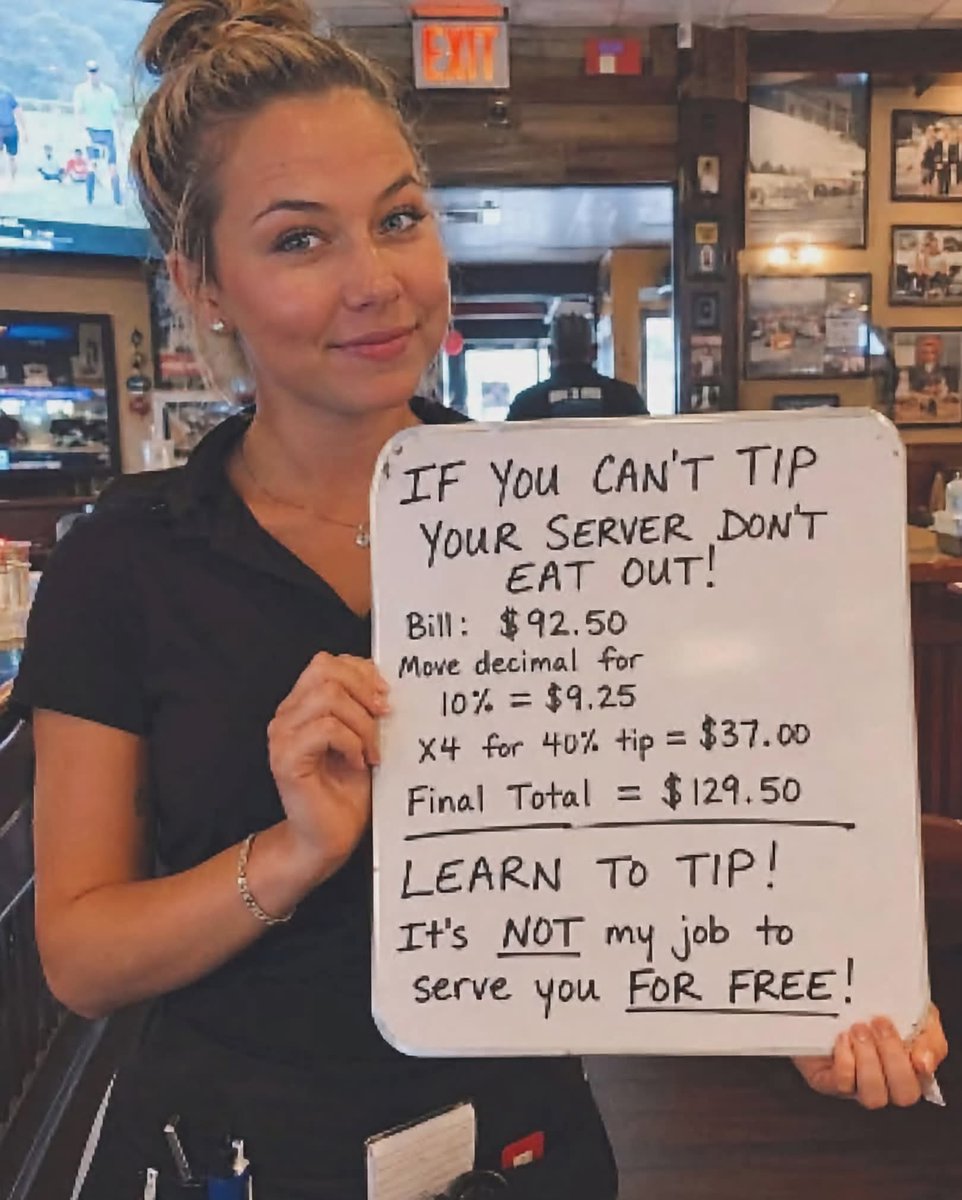 EXIT
IF YOU CAN'T TIP
YOUR SERVER DON'T
EAT OUT!
Bill: $92.50
Move decimal for
10% = $9.25
X4 for 40% tip = $37.00
Final Total = $129.50
LEARN TO TIP!
It's NOT my job to
serve you FOR FREE!